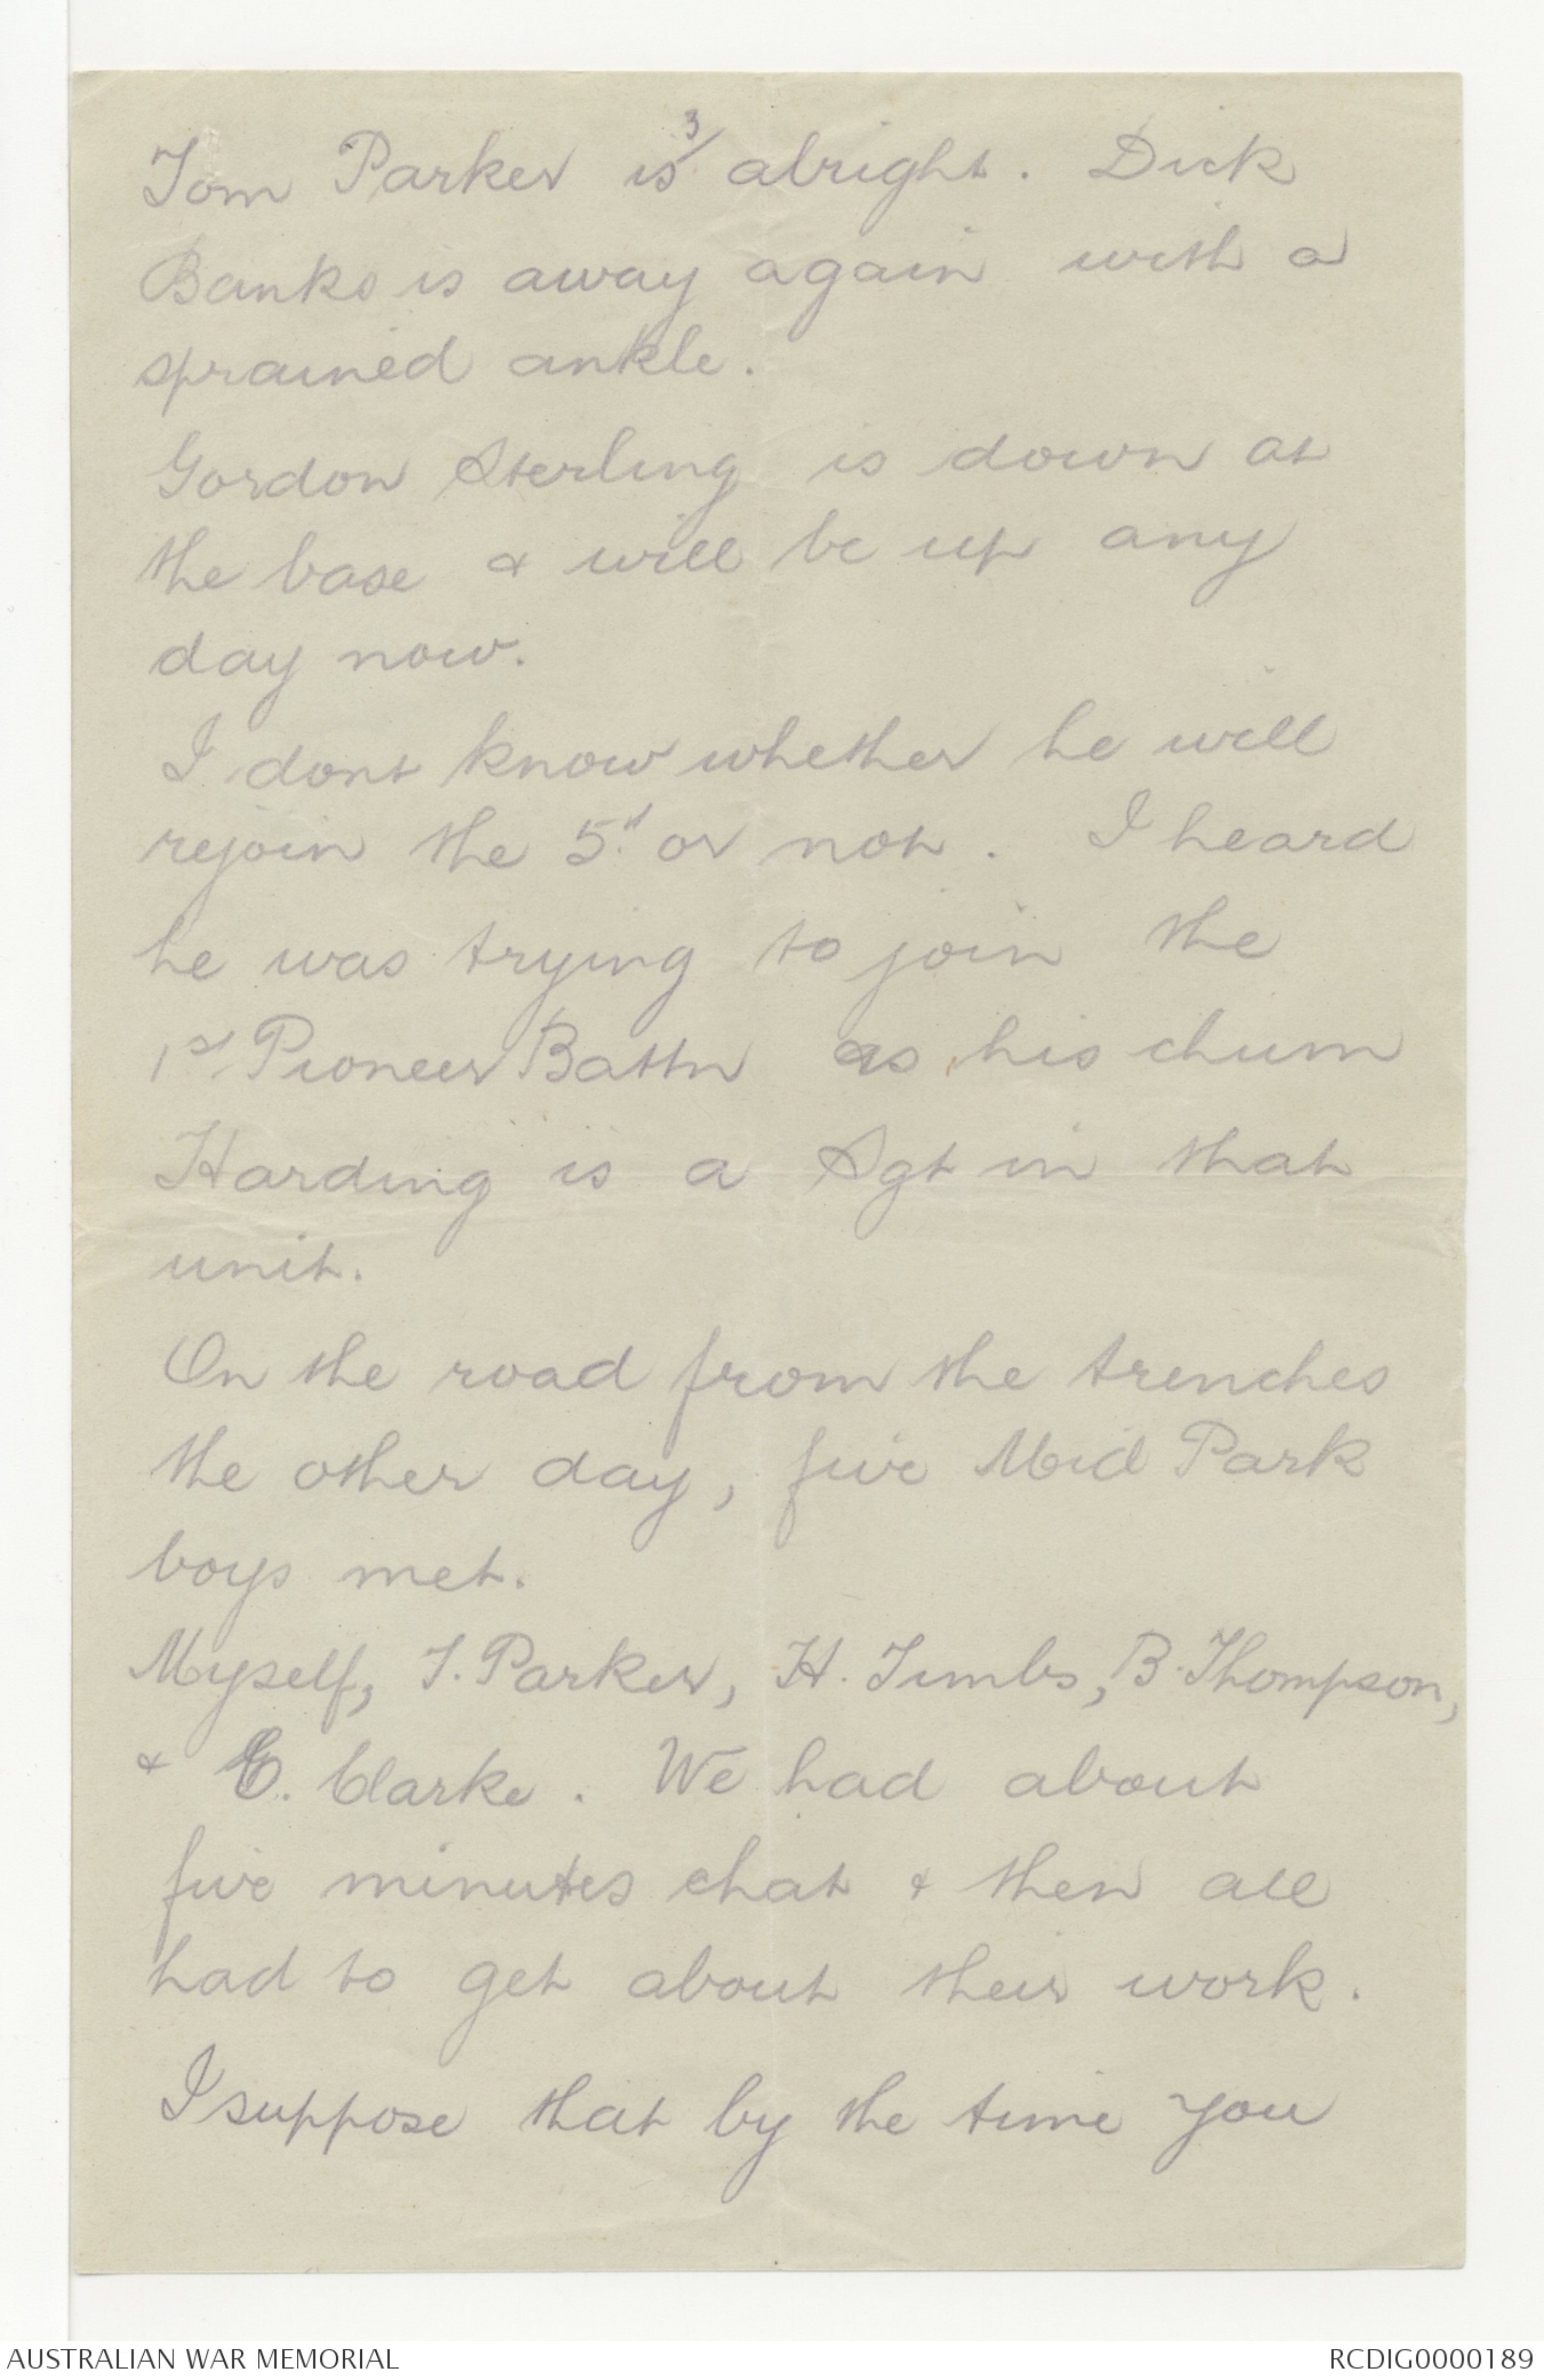 3/
Tom Parker is alright. Dick
Banks is away again with a
sprained ankle.
Gordon Sterling is down at
the base & will be up any
day now.
I dont know whether he will
rejoin the 5th or not. I heard
he was trying to join the
1st Pioneer Battn as his chum
Harding is a Sgt in that
unit.
On the road from the trenches
the other day, five Mid Park
boys met.
Myself, T. Parker, H. Timbs, B. Thompson,
& E. Clarke. We had about
five minutes chat & then all
had to get about their work.
I suppose that by the time you
AUSTRALIAN WAR MEMORIAL
RCDIG0000189